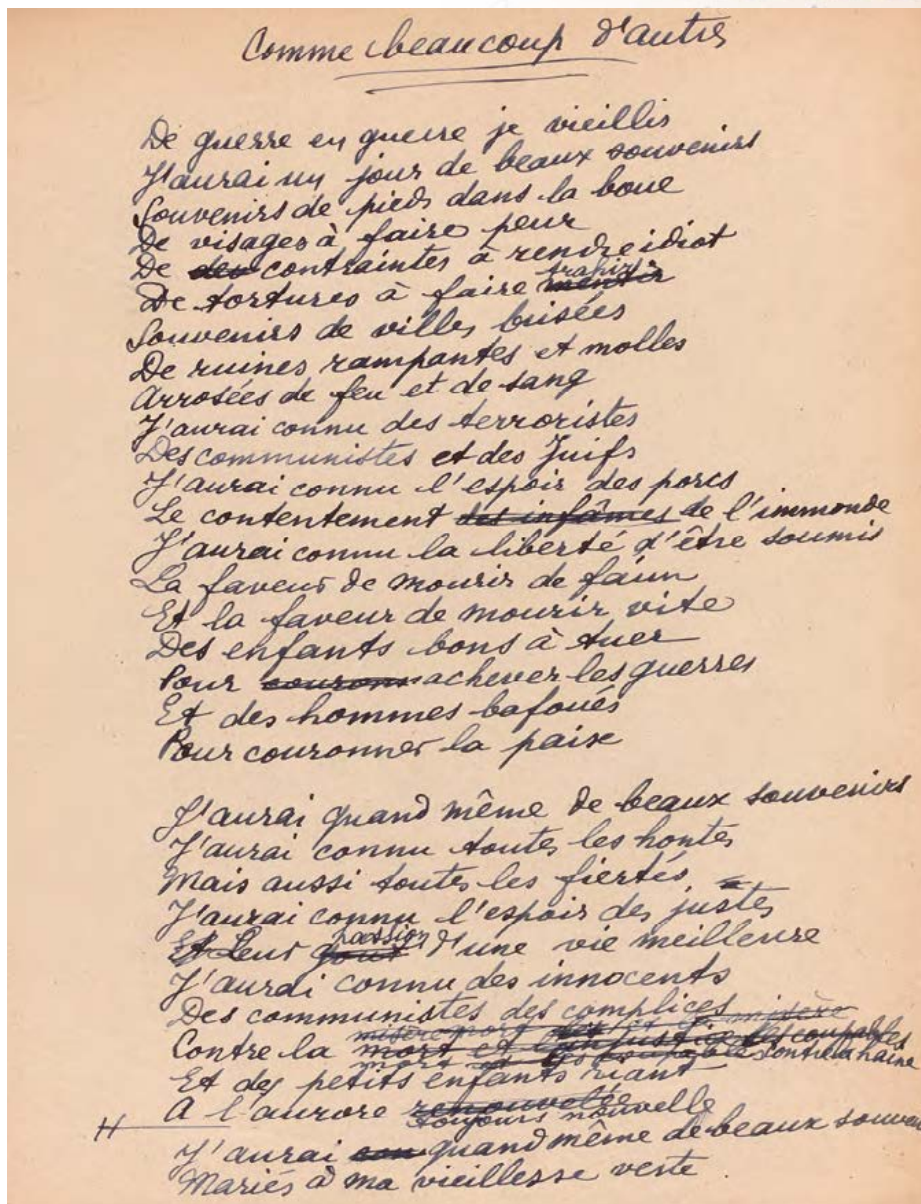 Comme beaucoup d'autres
De guerre en guerre je vieillis
J'aurai un jour de beaux souvenirs
Souvenirs de pieds dans la boue
De visages à faire peur
De des contraintes à rendre idiot
trahir
De tortures à faire mentir
Souvenirs de villes brisées
De ruines rampantes et molles
Arrosées de feu et de sang
J'aurai connu des terroristes
Des communistes et des Juifs
J'aurai connu l'espoir des porcs
Le contentement des infâmes de l'immonde
J'aurai connu la liberté d'être soumis
La faveur de mourir de faim
Et la faveur de mourir vite
Des enfants bons à tuer
Pour couronn achever les guerres
Et des hommes bafoués
Pour couronner la paix
J'aurai quand même de beaux souvenirs
J'aurai connu toutes les hontes
Mais aussi toutes les fiertés
J'aurai connu l'espoir des justes
passion
Et Leur gout d'une vie meilleure
J'aurai connu des innocents
Des communistes des complices
misère mort
Contre la mort et l'injustice les coupables
mort et les coupables contre la haine
Et des petits enfants riant
A l'aurore renouvelée
toujours nouvelle
J'aurai quand même de beaux souven
Mariés à ma vieillesse verte.